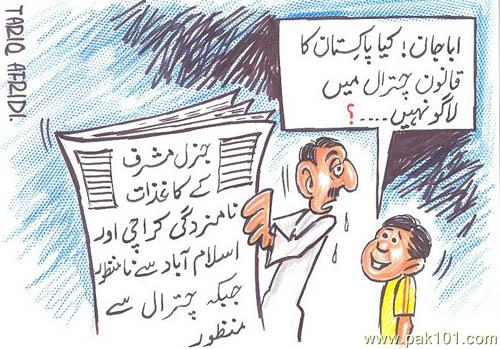 TARIQ AFRIDI.
ابا جان! کیا پاکستان کا
قانون چترال میں
لاگو نہیں....؟
جنرل مشرف
کے کاغذات
نامزدگی کراچی اور
اسلام آباد سے نامنظور
جبکہ چترال سے
منظور
www.pak101.com